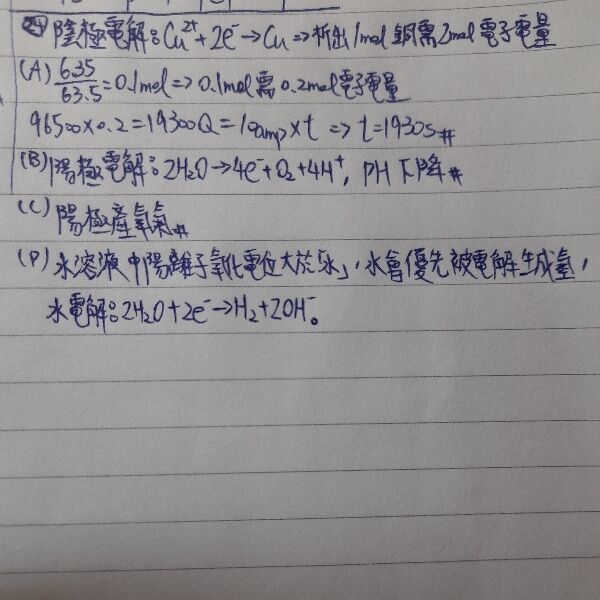 24 陰極電解：Cu²⁺+2e⁻→Cu⇒析出1mol銅需2mol電子電量
(A) 6.35/63.5=0.1mol⇒0.1mol需0.2mol電子電量
96500×0.2=19300Q=10amp×t ⇒ t=1930s#
(B) 陽極電解：2H₂O→4e⁻+O₂+4H⁺, PH下降#
(C) 陽極產氧氣#
(D) 水溶液中陽離子氧化電位大於「水」，水會優先被電解生成氫，
水電解：2H₂O+2e⁻→H₂+2OH⁻。